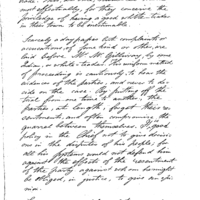 most affordably, for they conceive the
knowledge of having a good able trader
in their town to be inestimable.
Scarcely a day passes but complaints or
accusations, of some kind or other, are
laid before Mr. McGillivray, by some
Indian or white trader. His uniform method
of proceeding is cautiously to hear the
evidence of the parties, and never to de-
cide on the case. By putting off the
trial from one time to another, the
parties, at length, forget their re-
sentments and often compromise the
quarrel between themselves. If good
policy in the Chief not to give decisions
in the disputes of his people; for
all his options could not defend him
against the effects of the resentment
of the party against whom he might
be obliged, in justice, to give an opi-
nion.